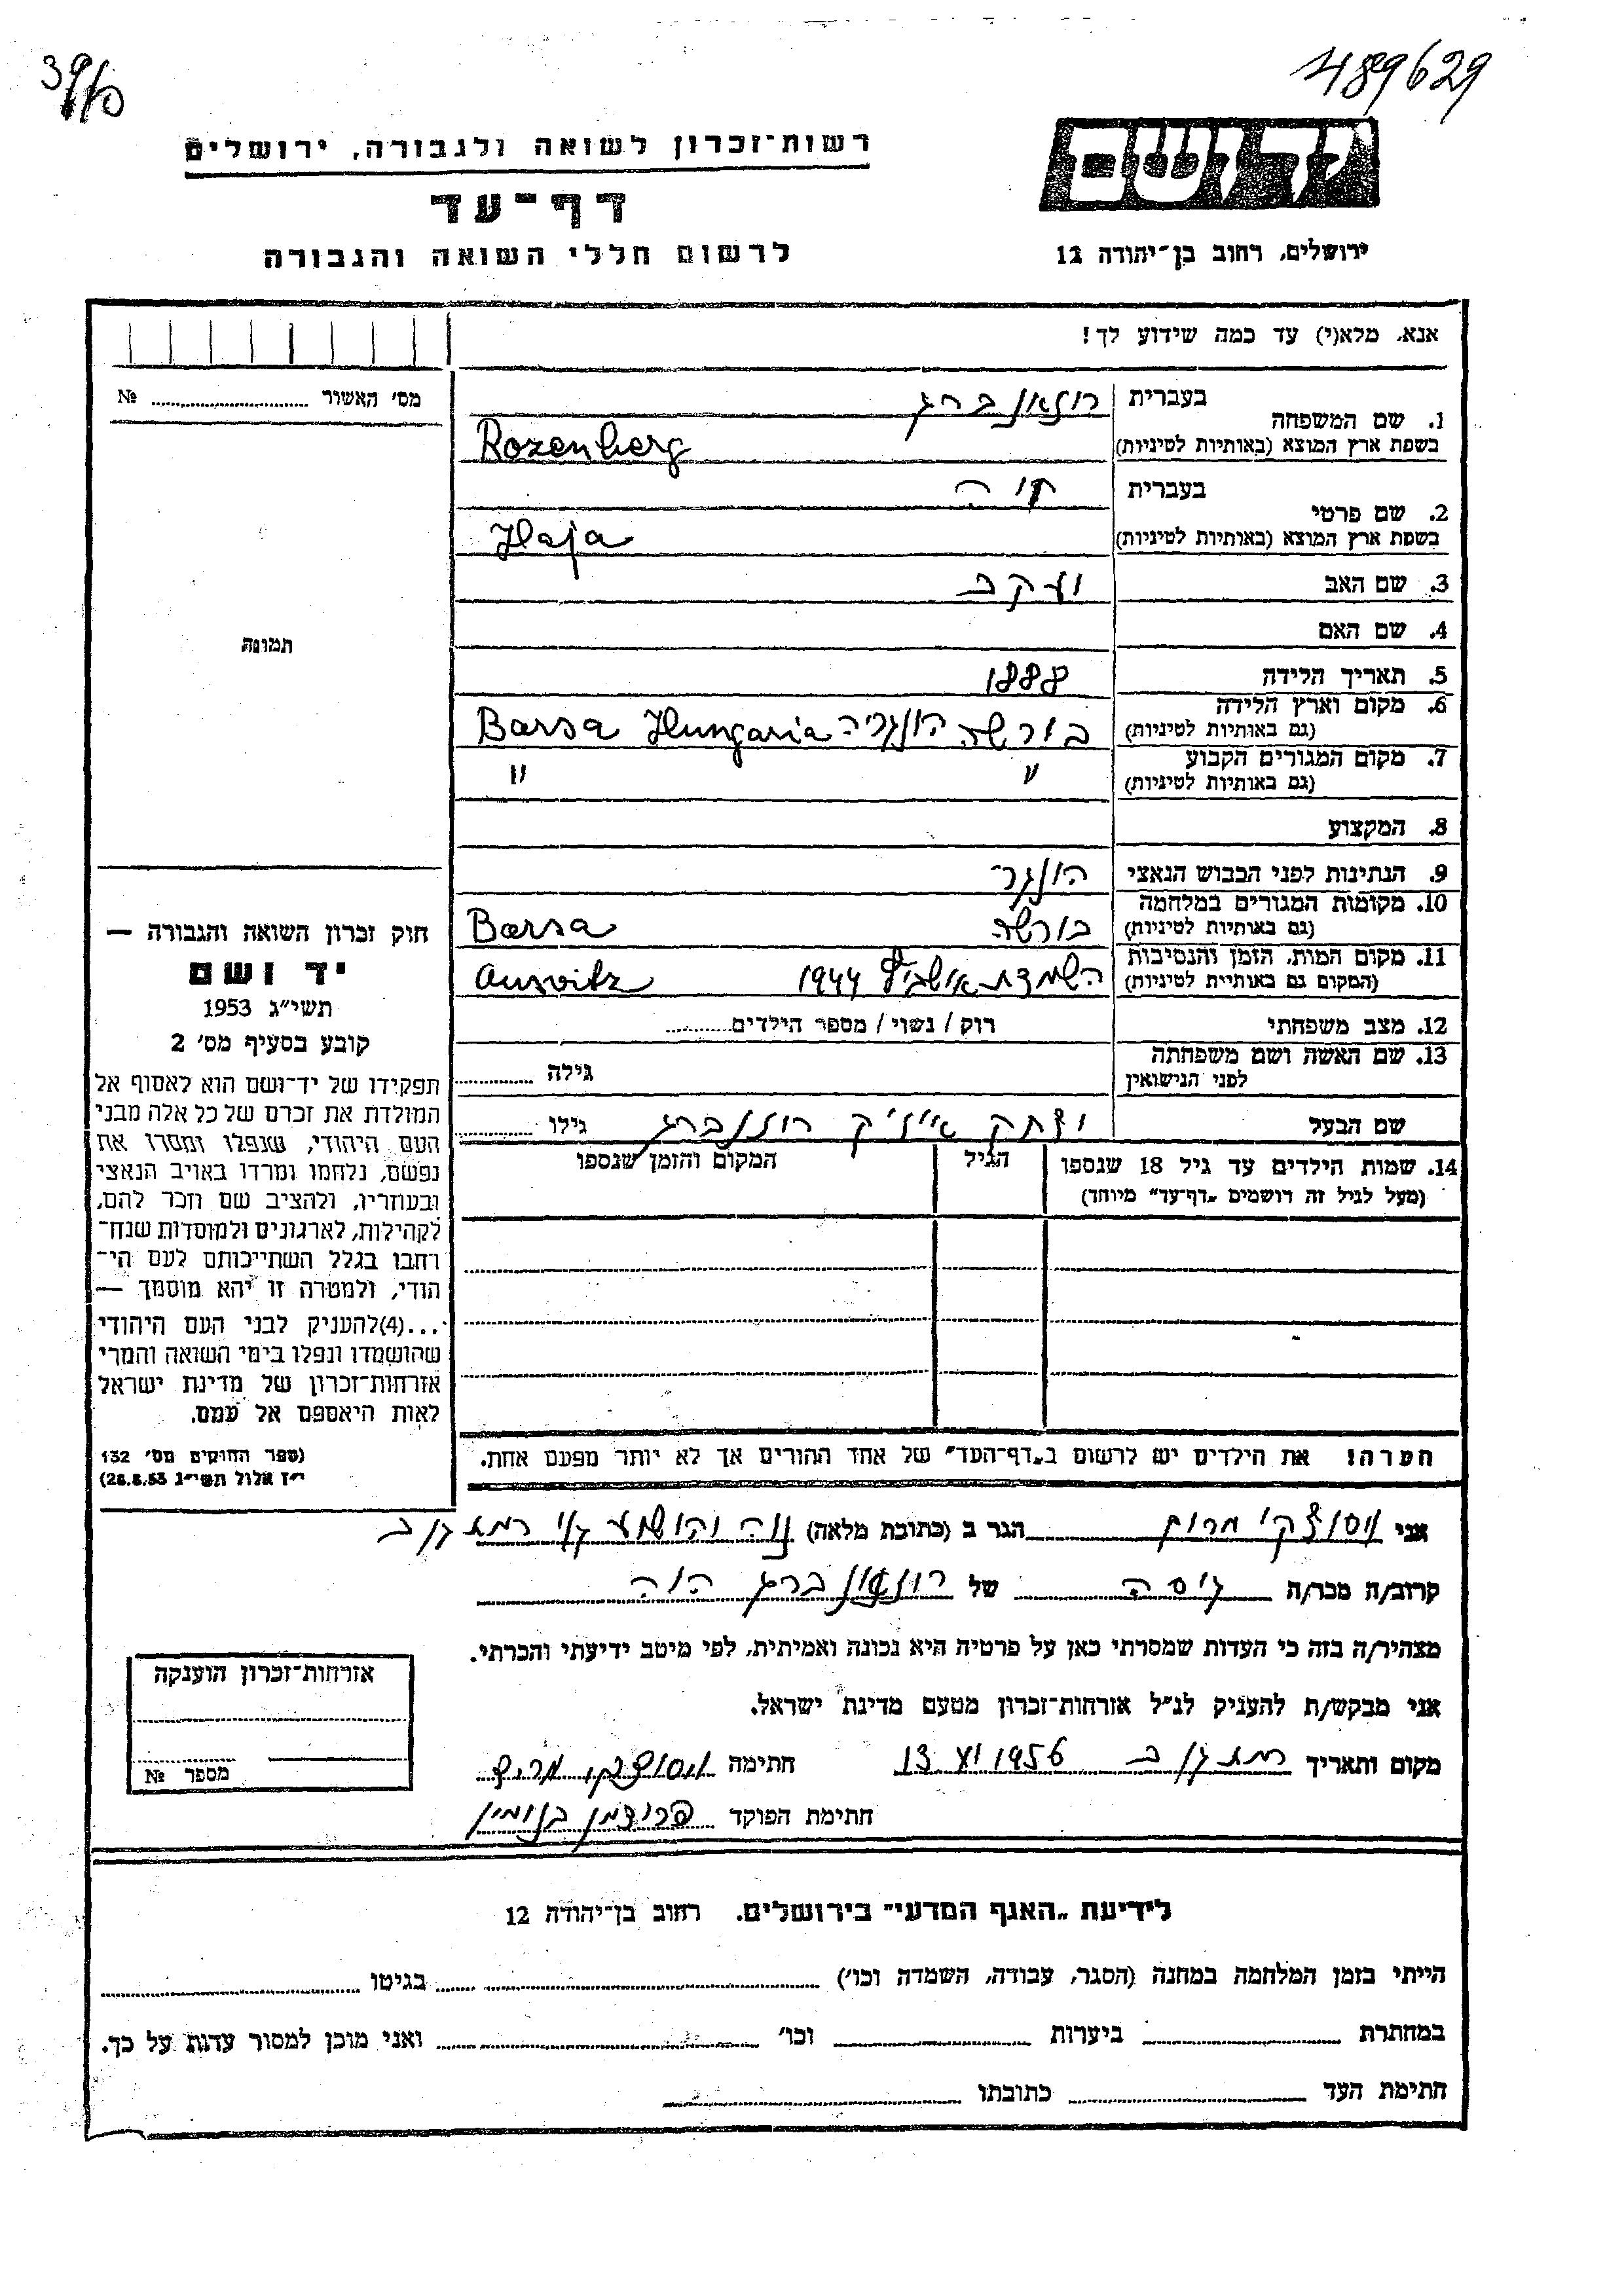 489629
39/5
יד ושם
רשות־זכרון לשואה ולגבורה, ירושלים
דף־עד
לרשום חללי השואה והגבורה
ירושלים, רחוב בן־יהודה 12
אנא, מלא(י) עד כמה שידוע לך!
מס׳ האשור ........ №
1. שם המשפחה
בעברית
בשפת ארץ המוצא (באותיות לטיניות)
Rozenberg
2. שם פרטי
בעברית חיה
בשפת ארץ המוצא (באותיות לטיניות)
Haja
3. שם האב יעקב
4. שם האם
5. תאריך הלידה 1888
6. מקום וארץ הלידה
(גם באותיות לטיניות)
בורשה הונגריה Barsa Hungaria
7. מקום המגורים הקבוע
(גם באותיות לטיניות)
" "
8. המקצוע
9. הנתינות לפני הכבוש הנאצי הונגר׳
10. מקומות המגורים במלחמה
(גם באותיות לטיניות)
בורשה Barsa
11. מקום המות, הזמן והנסיבות
(המקום גם באותיית לטיניות)
השמדת 1944 Ausvitz
12. מצב משפחתי רוק / נשוי / מספר הילדים........
13. שם האשה ושם משפחתה
לפני הנישואין
גילה ........
שם הבעל יצחק אייזיק רוזנברג גילו ........
14. שמות הילדים עד גיל 18 שנספו
(מעל לגיל זה רושמים „דף־עד״ מיוחד)
הגיל
המקום והזמן שנספו
הערה! את הילדים יש לרשום ב„דף־העד״ של אחד ההורים אך לא יותר מפעם אחת.
תמונה
חוק זכרון השואה והגבורה —
יד ושם
תשי״ג 1953
קובע בסעיף מס׳ 2
תפקידו של יד־ושם הוא לאסוף אל
המולדת את זכרם של כל אלה מבני
העם היהודי, שנפלו ומסרו את
נפשם, נלחמו ומרדו באויב הנאצי
ובעוזריו, ולהציב שם וזכר להם,
לקהילות, לארגונים ולמוסדות שנח־
רחבו בגלל השתייכותם לעם הי־
הודי, ולמטרה זו יהא מוסמך —
...(4)להעניק לבני העם היהודי
שהושמדו ונפלו בימי השואה והמרי
אזרחות־זכרון של מדינת ישראל
לאות היאספם אל עמם.
(ספר החוקים מס׳ 132
י״ז אלול תשי״ג 28.8.53)
אני ויסוצקי מרים הגר ב (כתובת מלאה) נוה יהושע רמת גן ב
קרוב/ה מכר/ה גיסה של
מצהיר/ה בזה כי העדות שמסרתי כאן על פרטיה היא נכונה ואמיתית, לפי מיטב ידיעתי והכרתי.
אני מבקש/ת להעניק לנ״ל אזרחות־זכרון מטעם מדינת ישראל.
מקום ותאריך רמת גן ב 1956 13 חתימה ויסוצקי מרים
חתימת הפוקד פרידמן בנימין
אזרחות־זכרון הוענקה
מספר №
לידיעת „האגף המדעי״ בירושלים. רחוב בן־יהודה 12
הייתי בזמן המלחמה במחנה (הסגר, עבודה, השמדה וכו׳) ........ בגיטו ........
במחתרת ........ ביערות ........ וכו׳ ........ ואני מוכן למסור עדות על כך.
חתימת העד ........ כתובתו ........